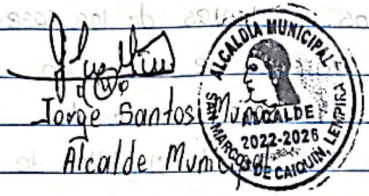 Jorge Santos
Alcalde Municipal
ALCALDIA MUNICIPAL
ALCALDE
2022-2026
SAN MARCOS DE CAIQUIN, LEMPIRA